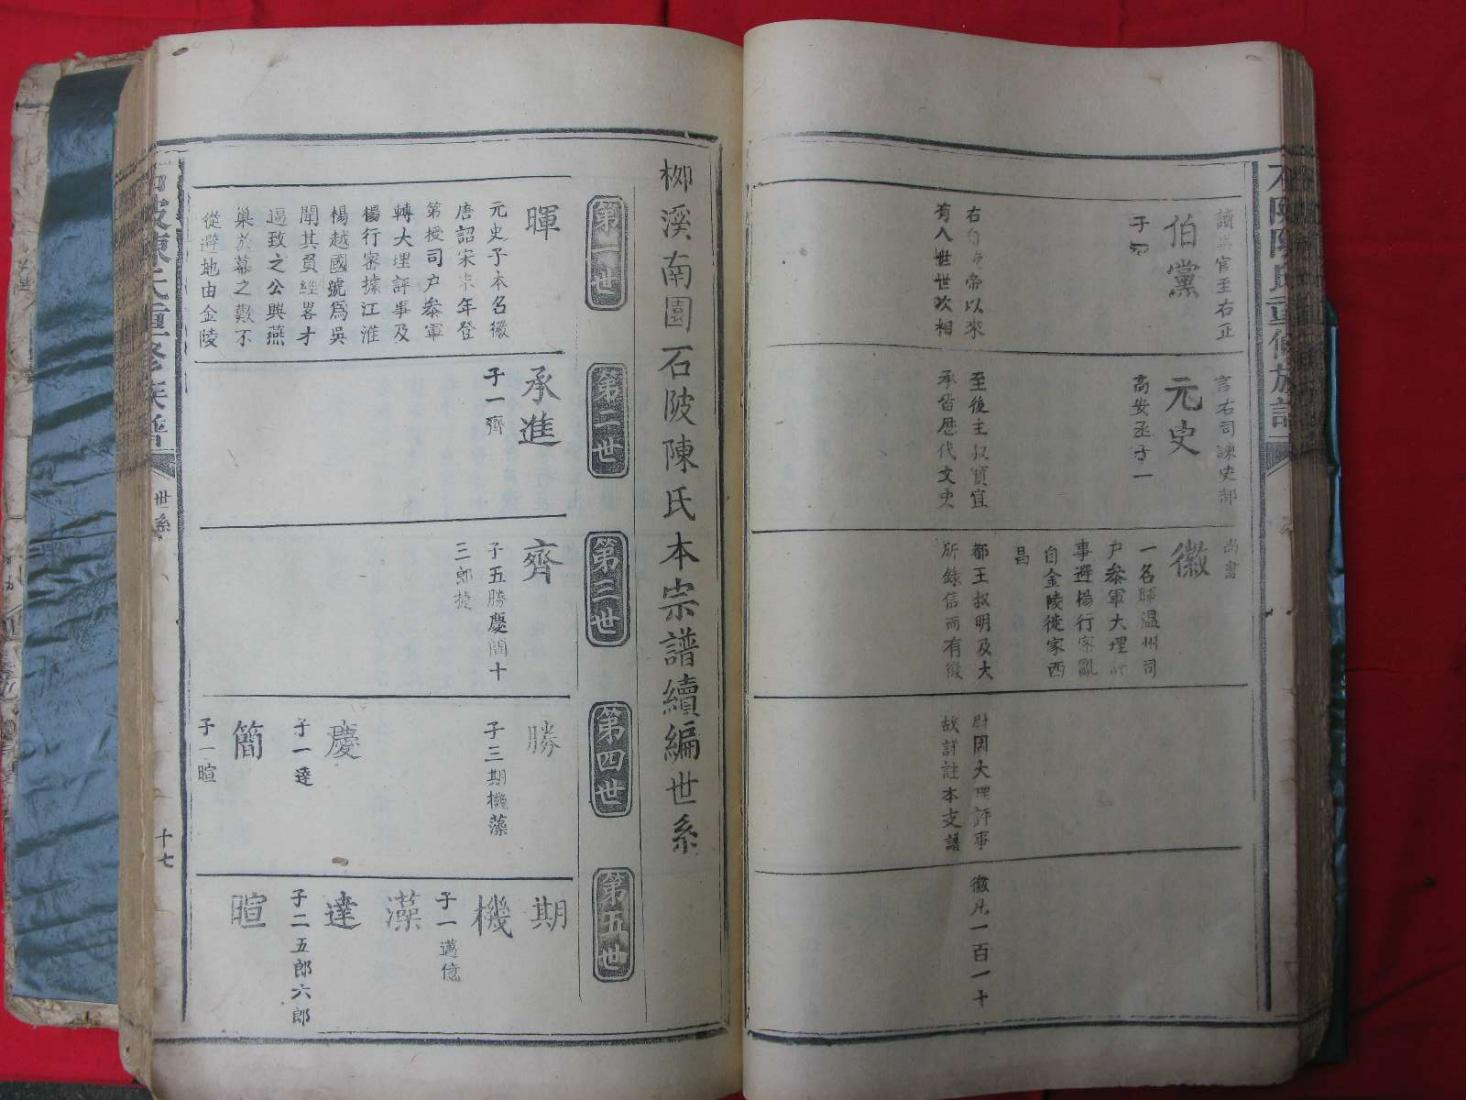 讀
官至右正
伯黨
子
言右司諫史部
元史
高安丞子一
尚書
徽
一名暉溫州司
户參軍大理
事避楊行密亂
自金陵徙家西
昌
右
帝以來
有入世世次相
至後主叔寶宜
承皆歷代文史
都王叔明及大
所錄信而有徵
尉因大理評事
故訂註本支譜
徽凡一百一十
柳溪南園石陂陳氏本宗譜續編世系
第一世
第二世
第三世
第四世
第五世
暉
元史子本名徽
唐詔宗末年登
第授司户參軍
轉大理評事及
楊行密據江淮
楊越國號為吳
聞其負經畧才
逼致之公興燕
巢於幕之歎不
從避地由金陵
承進
子一齊
齊
子五勝慶簡十
三郎
勝
子三期機藻
慶
子一達
簡
子一暄
期
機
子一邁億
藻
達
子二五郎六郎
暄
石陂陳氏重修族譜
世系
十七